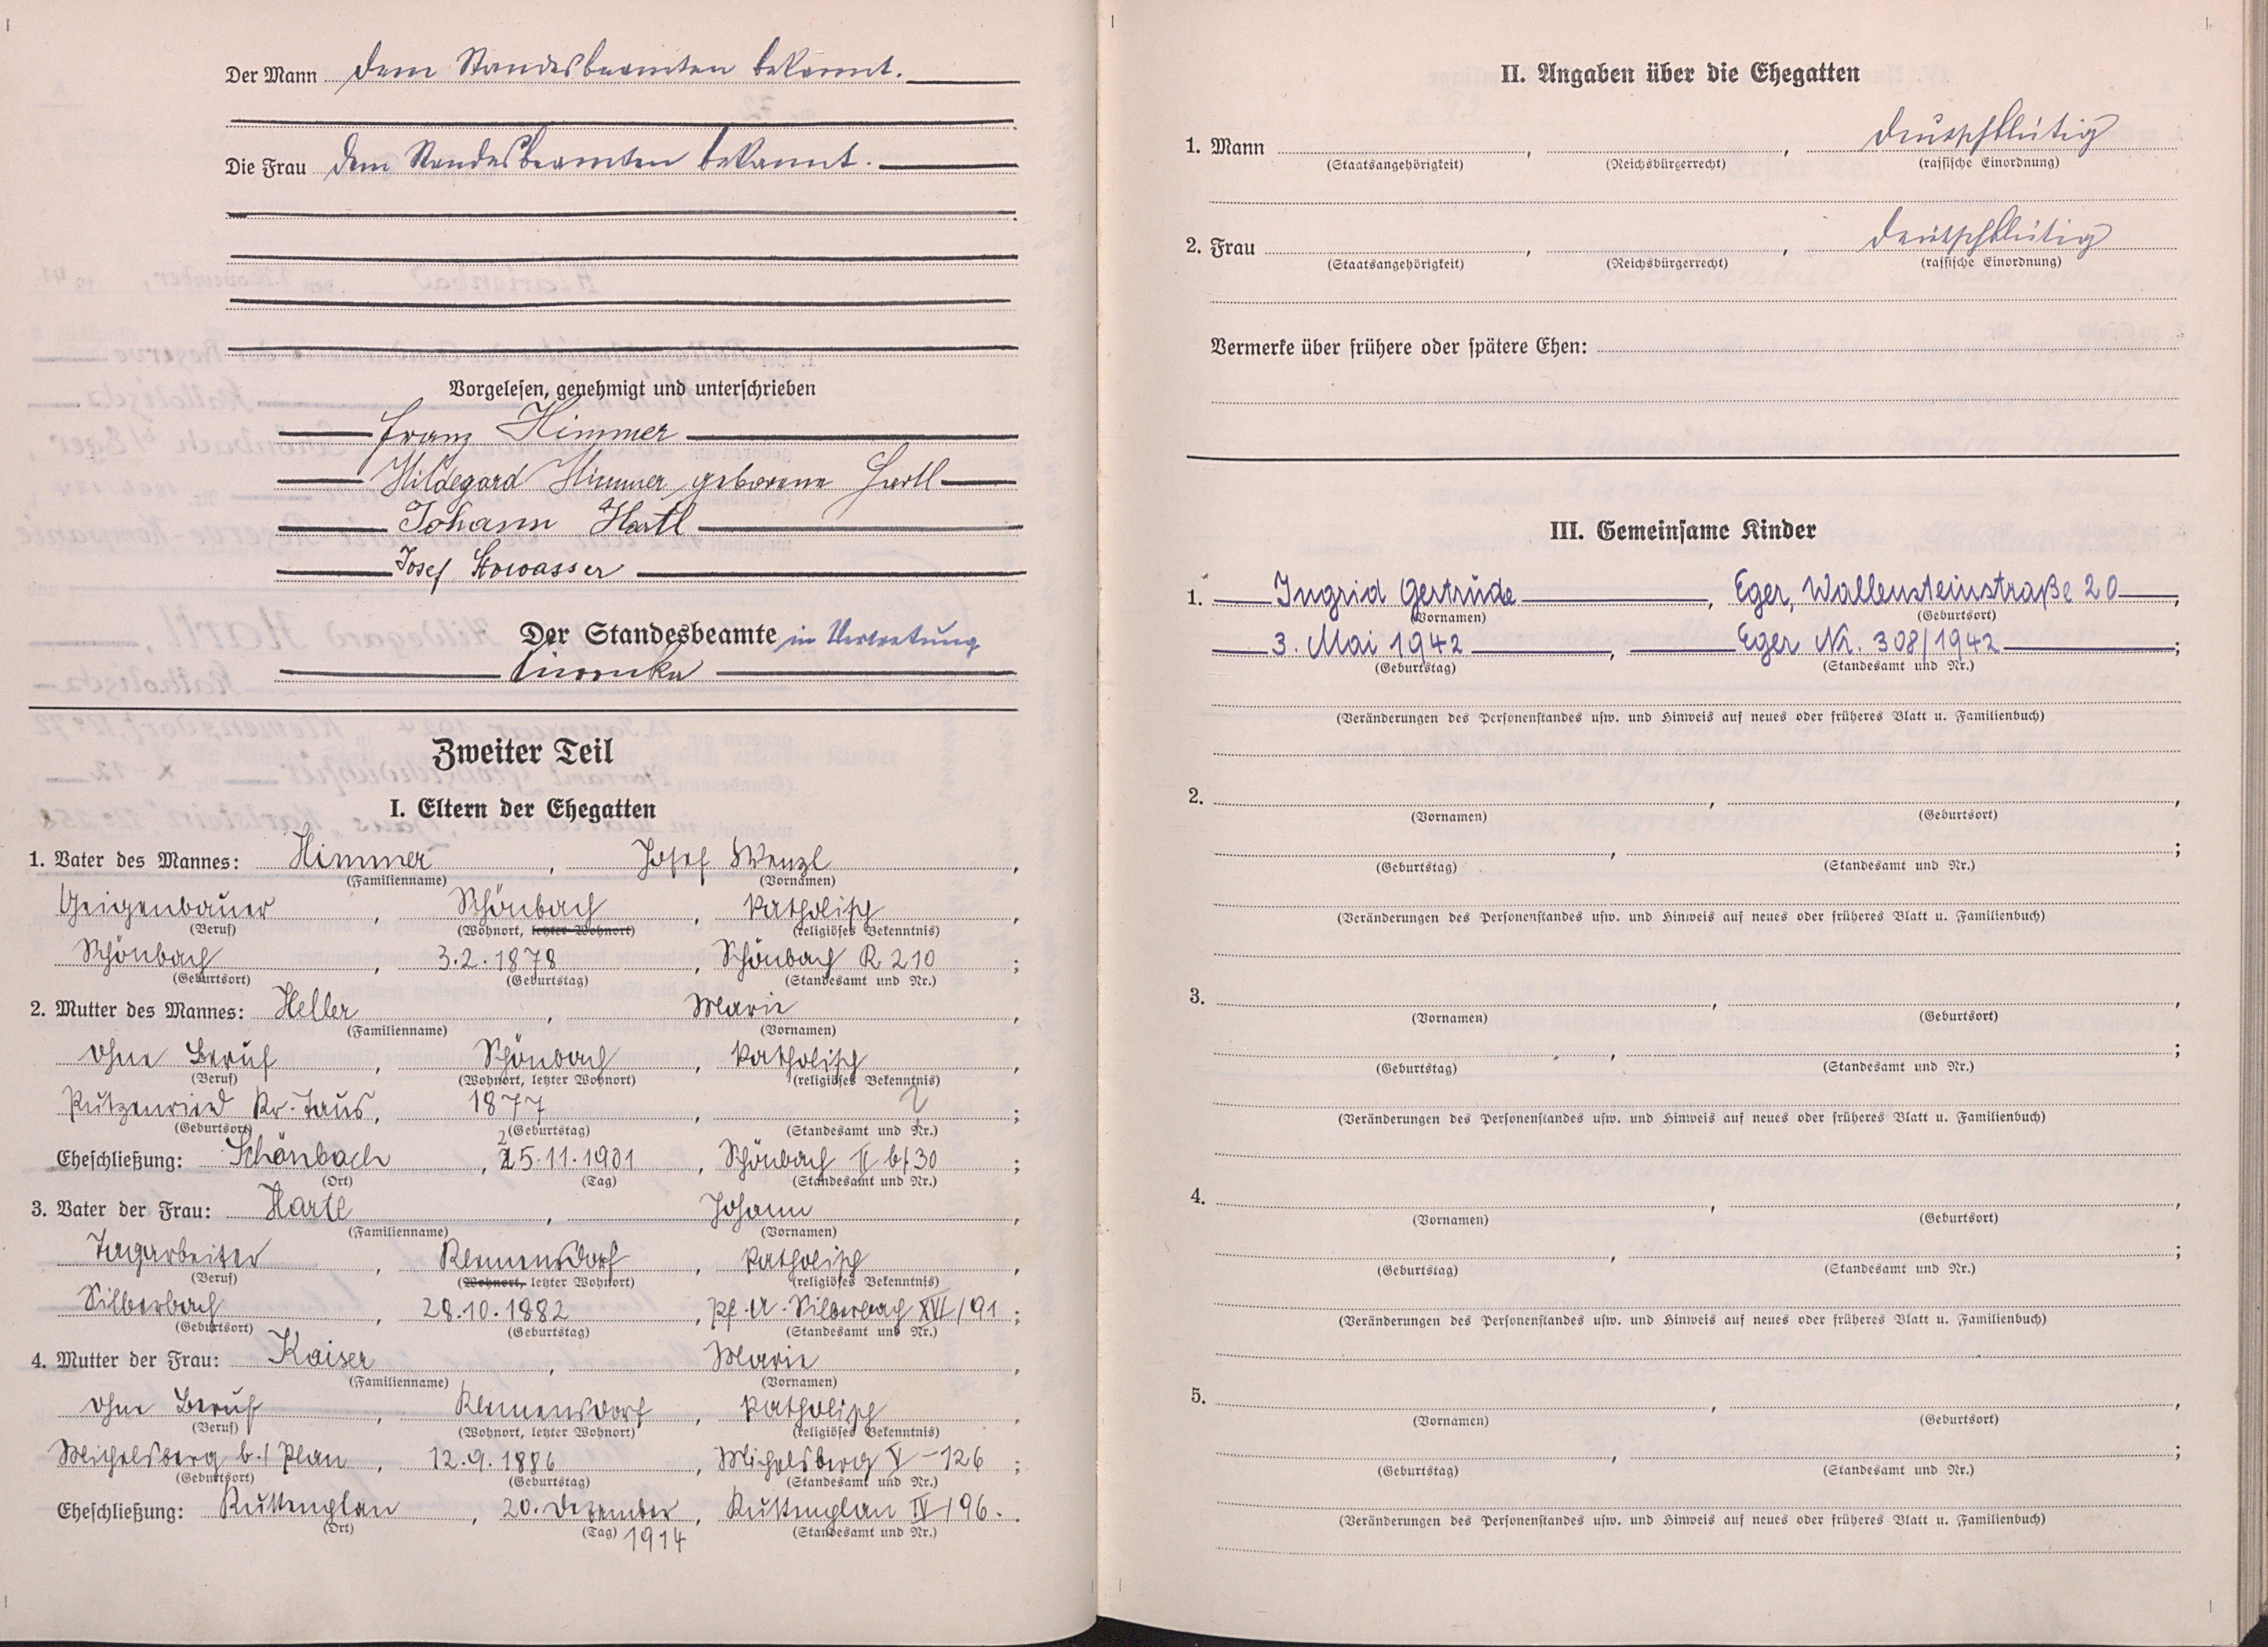 Der Mann dem Standesbeamten bekannt.
Die Frau dem Standesbeamten bekannt.
Vorgelesen, genehmigt und unterschrieben
Franz Himmer
Hildegard Himmer geborene Hartl
Johann Hartl
Josef Stowasser
Der Standesbeamte in Vertretung
Zweiter Teil
I. Eltern der Ehegatten
1. Vater des Mannes: Himmer, Josef Wenzl,
(Familienname) (Vornamen)
Geigenbauer, Schönbach, katholisch,
(Beruf) (Wohnort, letzter Wohnort) (religiöses Bekenntnis)
Schönbach, 3.2.1878, Schönbach R 210;
(Geburtsort) (Geburtstag) (Standesamt und Nr.)
2. Mutter des Mannes: Heller, Marie,
(Familienname) (Vornamen)
ohne Beruf, Schönbach, katholisch,
(Beruf) (Wohnort, letzter Wohnort) (religiöses Bekenntnis)
Putzenried Kr. Taus, 1877, ;
(Geburtsort) (Geburtstag) (Standesamt und Nr.)
Eheschließung: Schönbach, 25.11.1901, Schönbach II b/30;
(Ort) (Tag) (Standesamt und Nr.)
3. Vater der Frau: Hartl, Johann,
(Familienname) (Vornamen)
Tagarbeiter, Klemensdorf, katholisch,
(Beruf) (Wohnort, letzter Wohnort) (religiöses Bekenntnis)
Silberbach, 28.10.1882, Pf. A. Silberbach XVI/91;
(Geburtsort) (Geburtstag) (Standesamt und Nr.)
4. Mutter der Frau: Kaiser, Marie,
(Familienname) (Vornamen)
ohne Beruf, Klemensdorf, katholisch,
(Beruf) (Wohnort, letzter Wohnort) (religiöses Bekenntnis)
Michelsberg b./Plan, 12.9.1886, Michelsberg V-126;
(Geburtsort) (Geburtstag) (Standesamt und Nr.)
Eheschließung: Kuttenplan, 20. Dezember, Kuttenplan IV/96.
(Ort) (Tag) 1914 (Standesamt und Nr.)
II. Angaben über die Ehegatten
1. Mann , , deutschblütig
(Staatsangehörigkeit) (Reichsbürgerrecht) (rassische Einordnung)
2. Frau , , deutschblütig
(Staatsangehörigkeit) (Reichsbürgerrecht) (rassische Einordnung)
Vermerke über frühere oder spätere Ehen:
III. Gemeinsame Kinder
1. Ingrid Gertrude, Eger, Wallensteinstraße 20,
(Vornamen) (Geburtsort)
3. Mai 1942, Eger Nr. 308/1942;
(Geburtstag) (Standesamt und Nr.)
(Veränderungen des Personenstandes usw. und Hinweis auf neues oder früheres Blatt u. Familienbuch)
2. , ,
(Vornamen) (Geburtsort)
, ;
(Geburtstag) (Standesamt und Nr.)
(Veränderungen des Personenstandes usw. und Hinweis auf neues oder früheres Blatt u. Familienbuch)
3. , ,
(Vornamen) (Geburtsort)
, ;
(Geburtstag) (Standesamt und Nr.)
(Veränderungen des Personenstandes usw. und Hinweis auf neues oder früheres Blatt u. Familienbuch)
4. , ,
(Vornamen) (Geburtsort)
, ;
(Geburtstag) (Standesamt und Nr.)
(Veränderungen des Personenstandes usw. und Hinweis auf neues oder früheres Blatt u. Familienbuch)
5. , ,
(Vornamen) (Geburtsort)
, ;
(Geburtstag) (Standesamt und Nr.)
(Veränderungen des Personenstandes usw. und Hinweis auf neues oder früheres Blatt u. Familienbuch)